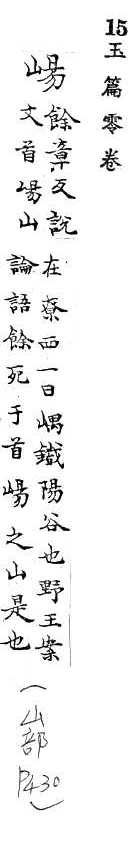 15玉篇零卷
崵
餘章反說
文首崵山
在寮西一曰嵎鐵陽谷也野王案
論語餘死于首崵之山是也
(山部P430)